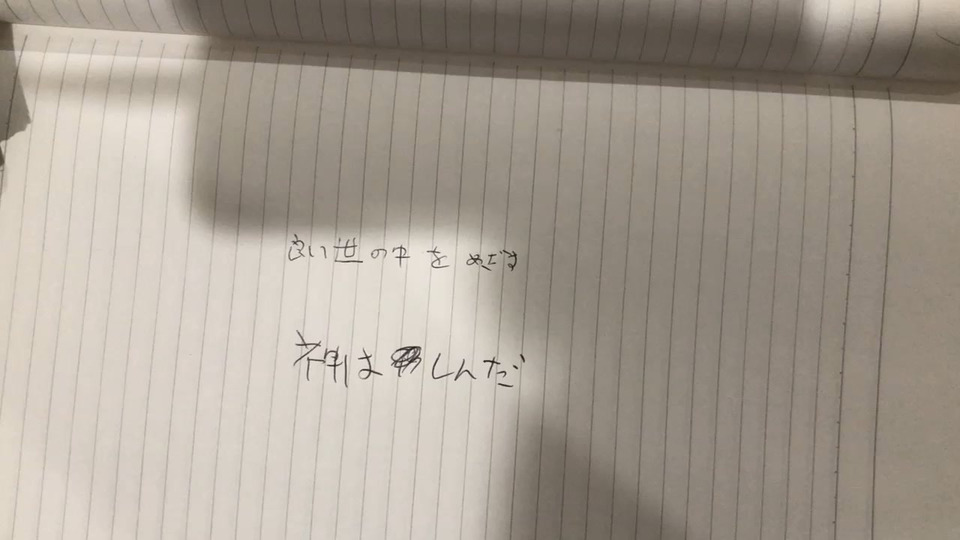 良い世の中をめざす
神はしんだ